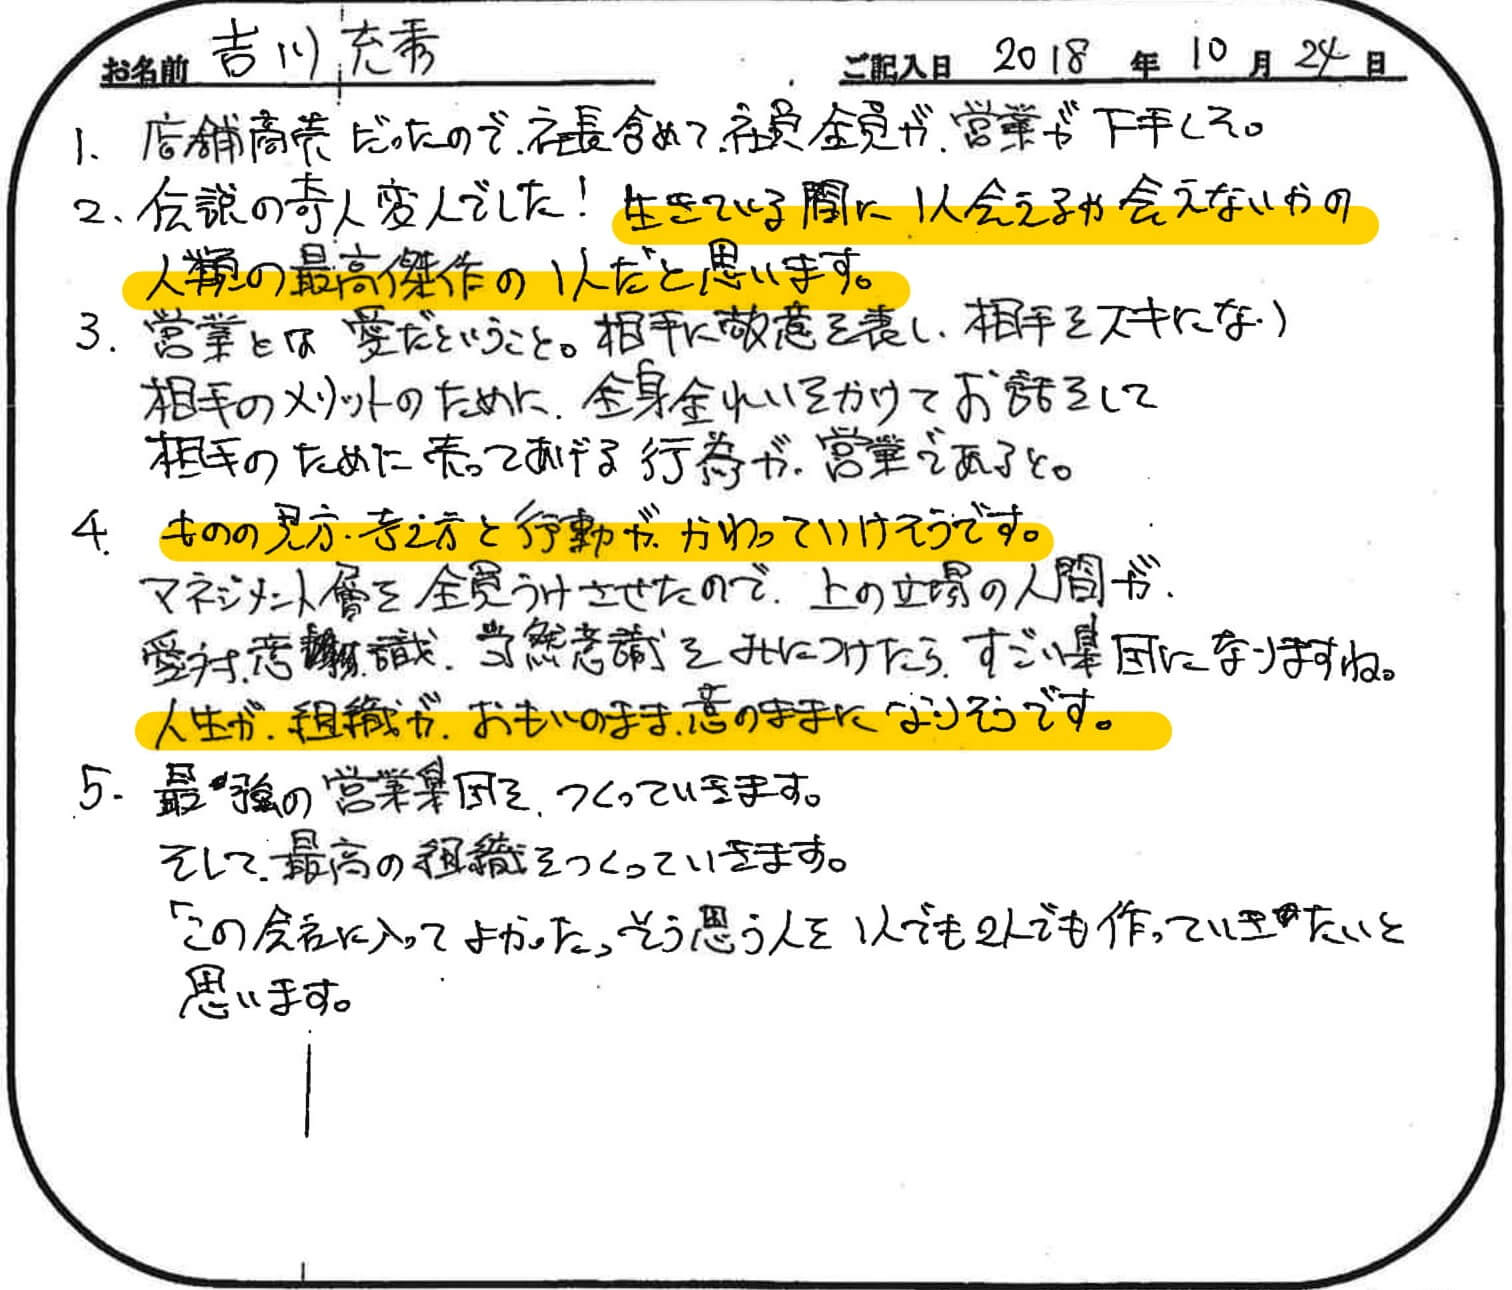 お名前 吉川 充秀 ご記入日 2018年10月24日
1. 店舗商売だったので、社長含めて、社員全員が、営業が下手くそ。
2. 伝説の奇人変人でした！生きている間に1人会えるか会えないかの
人類の最高傑作の1人だと思います。
3. 営業とは愛だということ。相手に敬意を表し、相手をスキになり
相手のメリットのために、全身全れいをかけてお話をして
相手のために売ってあげる行為が、営業であると。
4. ものの見方・考え方と行動が、かわっていけそうです。
マネジメント層を全員うけさせたので、上の立場の人間が、
愛対、意識、当然意識をみにつけたら、すごい集団になりますね。
人生が、組織が、おもいのまま、意のままになりそうです。
5. 最強の営業集団を、つくっていきます。
そして、最高の組織をつくっていきます。
「この会社に入ってよかった」そう思う人を1人でも2人でも作っていきたいと
思います。